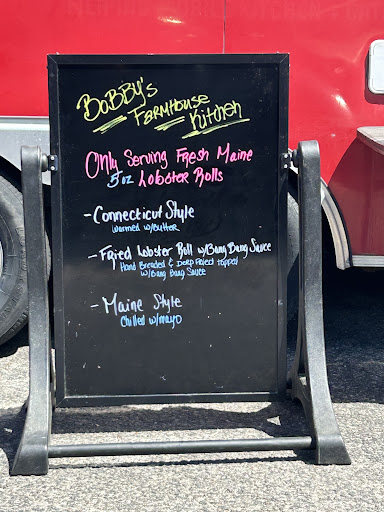 BoBBY's
FARMHOUSE
Kitchen
Only Serving Fresh Maine
5 oz Lobster Rolls
- Connecticut Style
Warmed w/Butter
- Fried Lobster Roll w/Bang Bang Sauce
Hand Breaded & Deep Fried topped
w/Bang Bang Sauce
- Maine Style
Chilled w/mayo